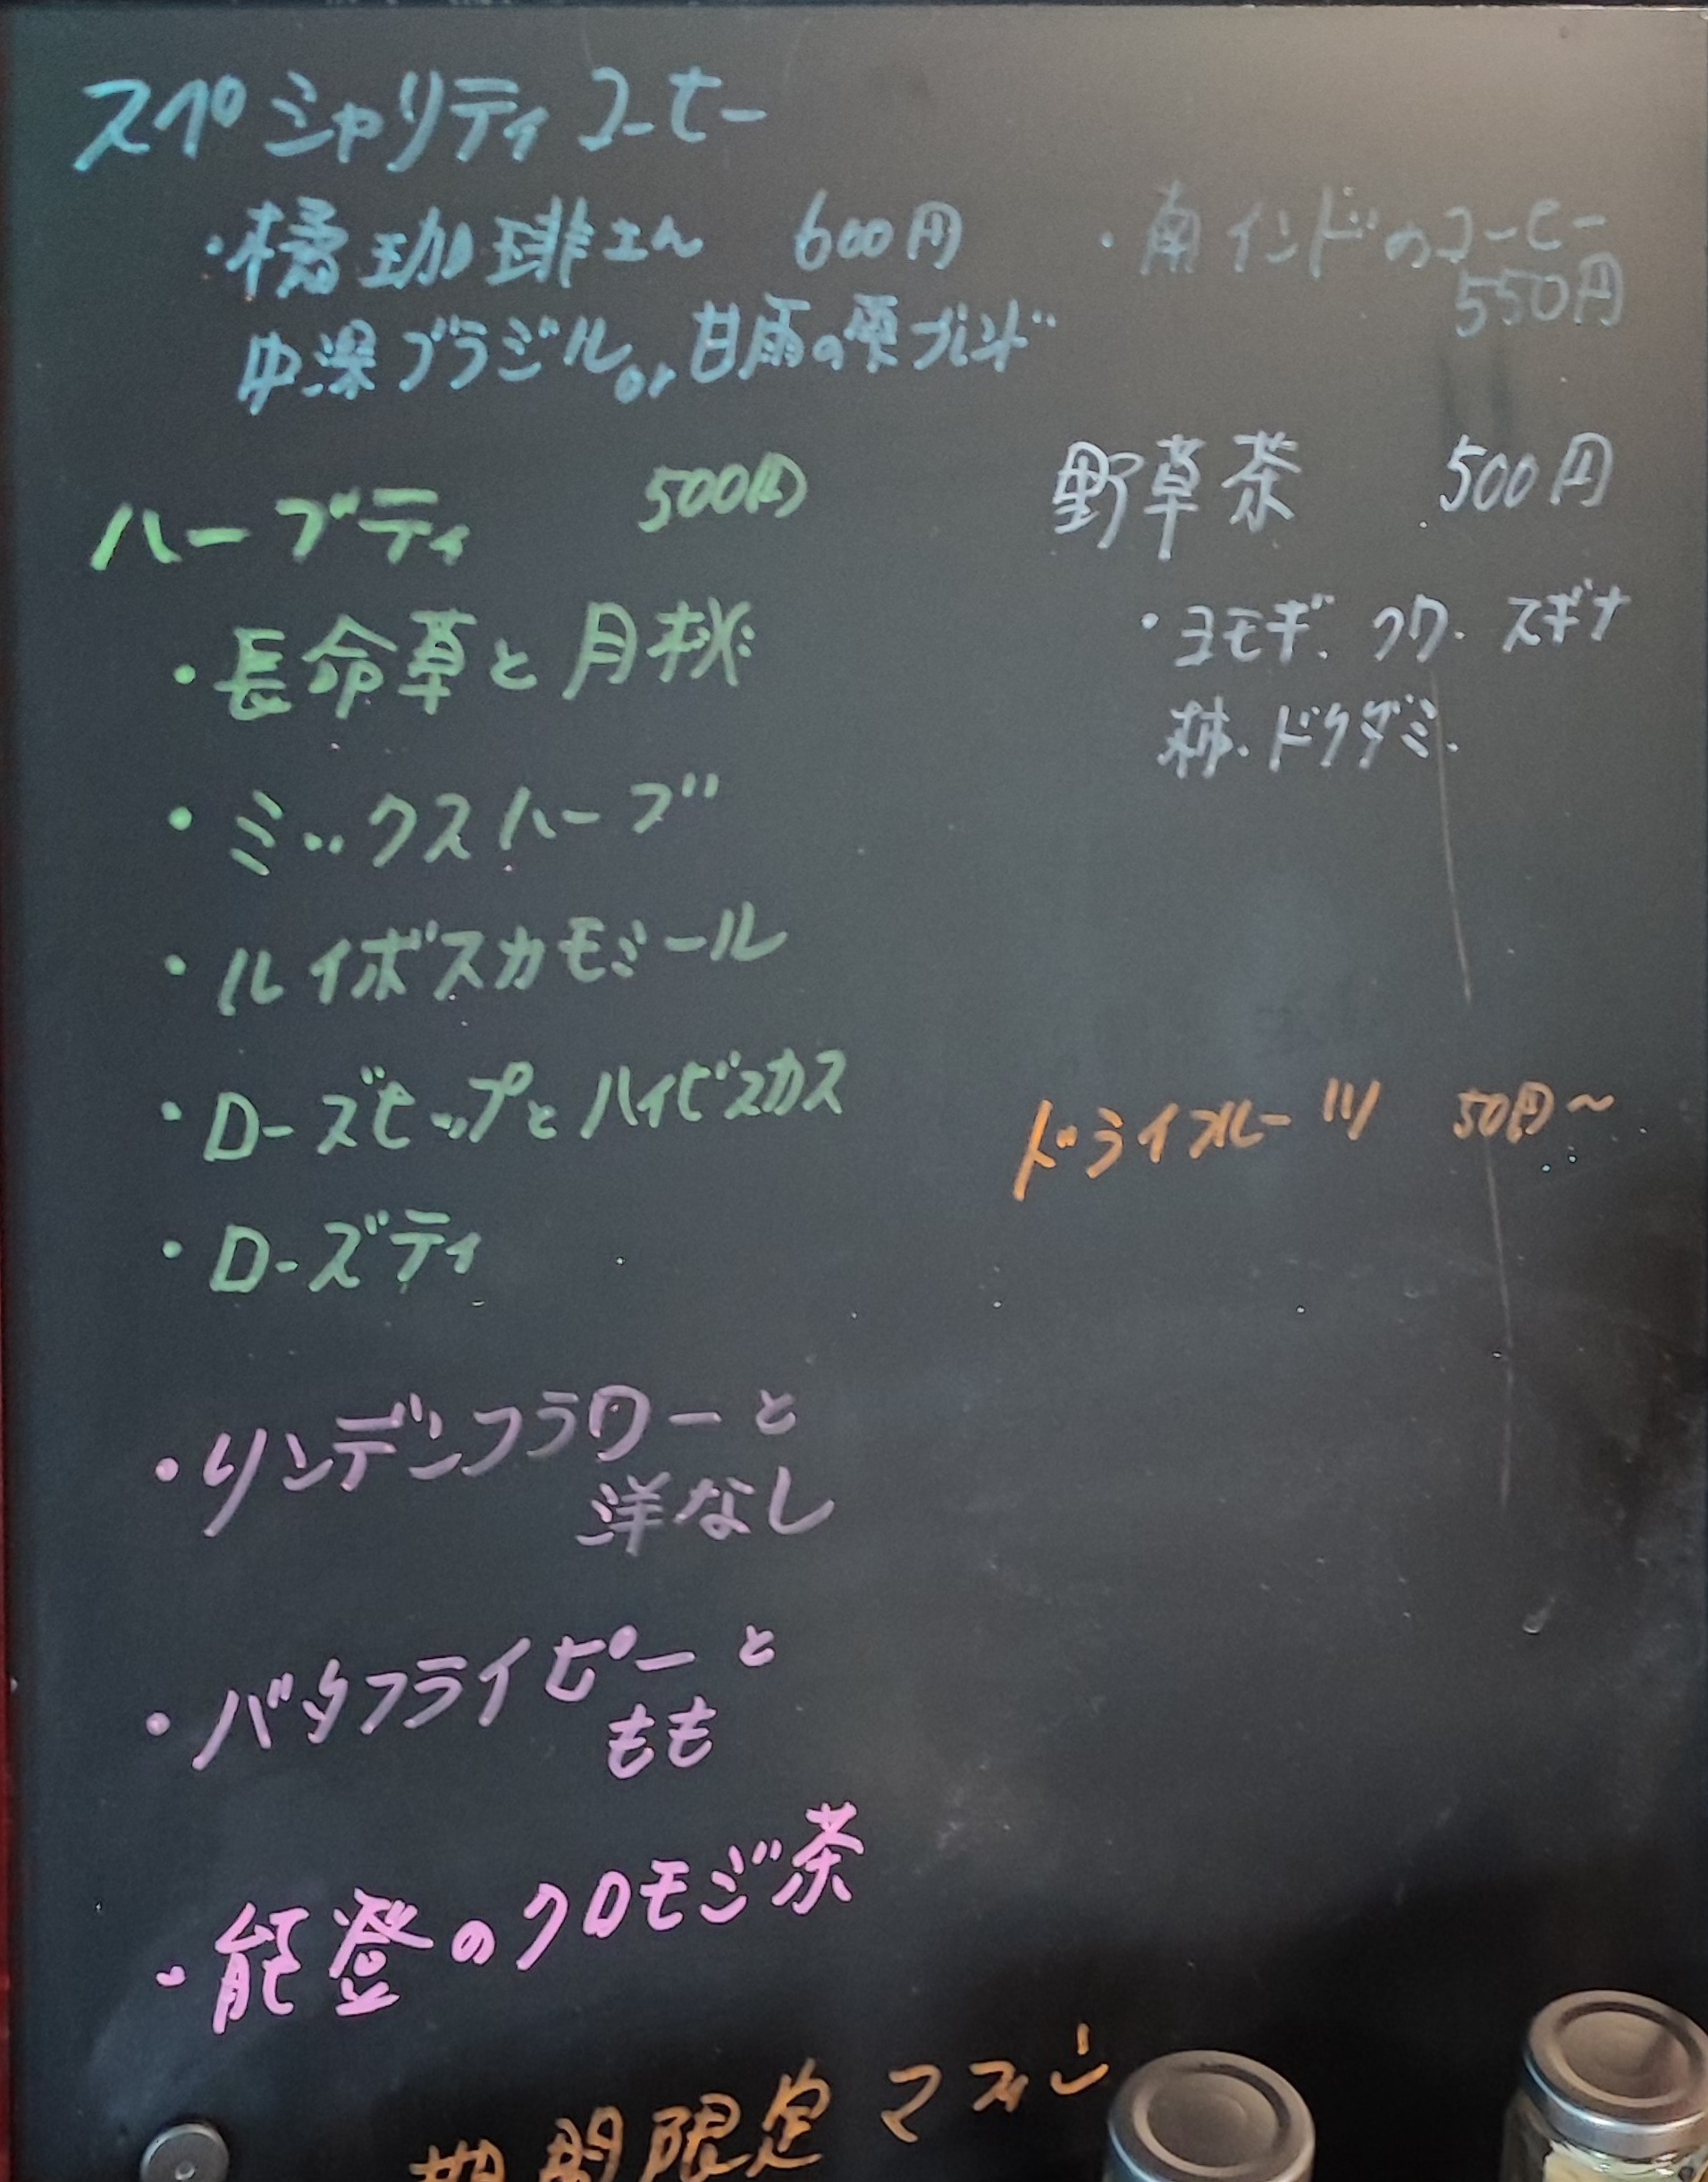 スペシャリティコーヒー
・橘珈琲さん 600円
中深ブラジル or 甘雨の栗ブレンド
・南インドのコーヒー
550円
ハーブティ 500円
・長命草と月桃
・ミックスハーブ
・ルイボスカモミール
・ローズヒップとハイビスカス
・ローズティ
・リンデンフラワーと
洋なし
・バタフライピーと
もも
・能登のクロモジ茶
野草茶 500円
・ヨモギ、クワ、スギナ
柿、ドクダミ、
ドライフルーツ 50円～
期間限定 マフィン